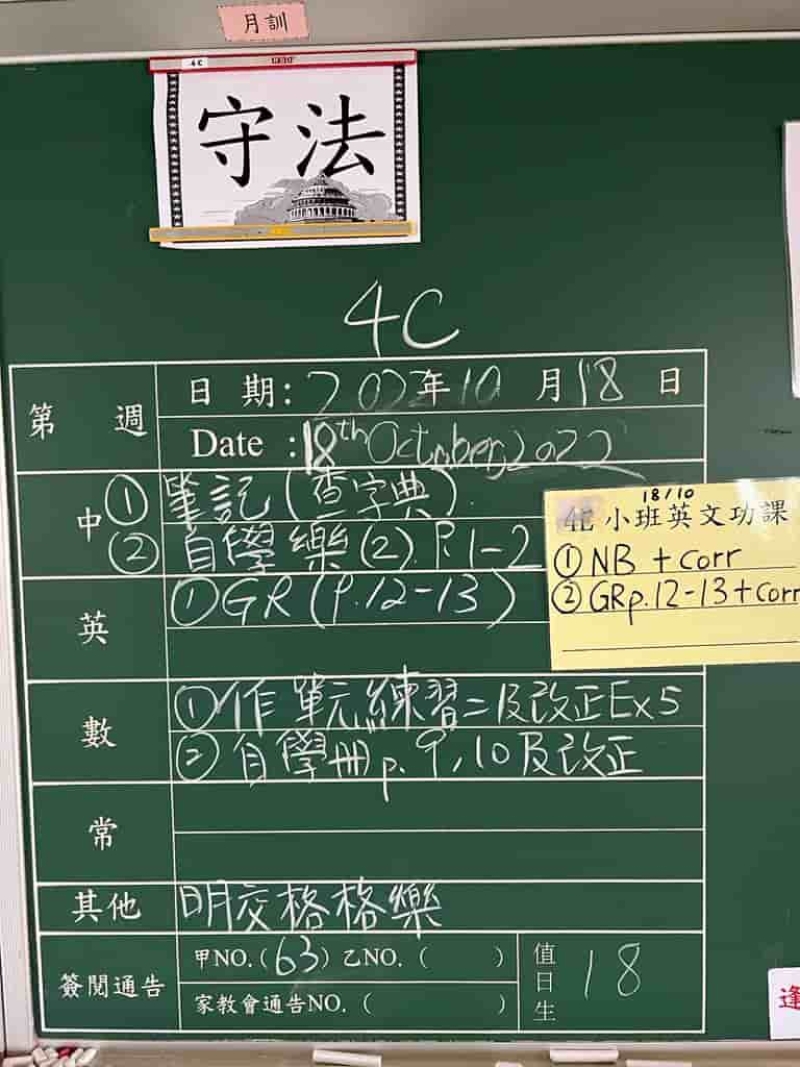 月訓
4C
守法
4C
第 週
日 期：2022年10月18日
Date : 18th October, 2022
中
① 筆記（查字典）.
② 自學樂(2). P.1-2
英
① GR (P.12-13)
18/10
小班英文功課
① NB + corr
② GRp.12-13+corr
數
① 作單元練習二及改正Ex5
② 自學冊p.9,10及改正
常
其他
明交格格樂
簽閱通告
甲NO.(63) 乙NO.( )
家教會通告NO.( )
值日生
18
逢